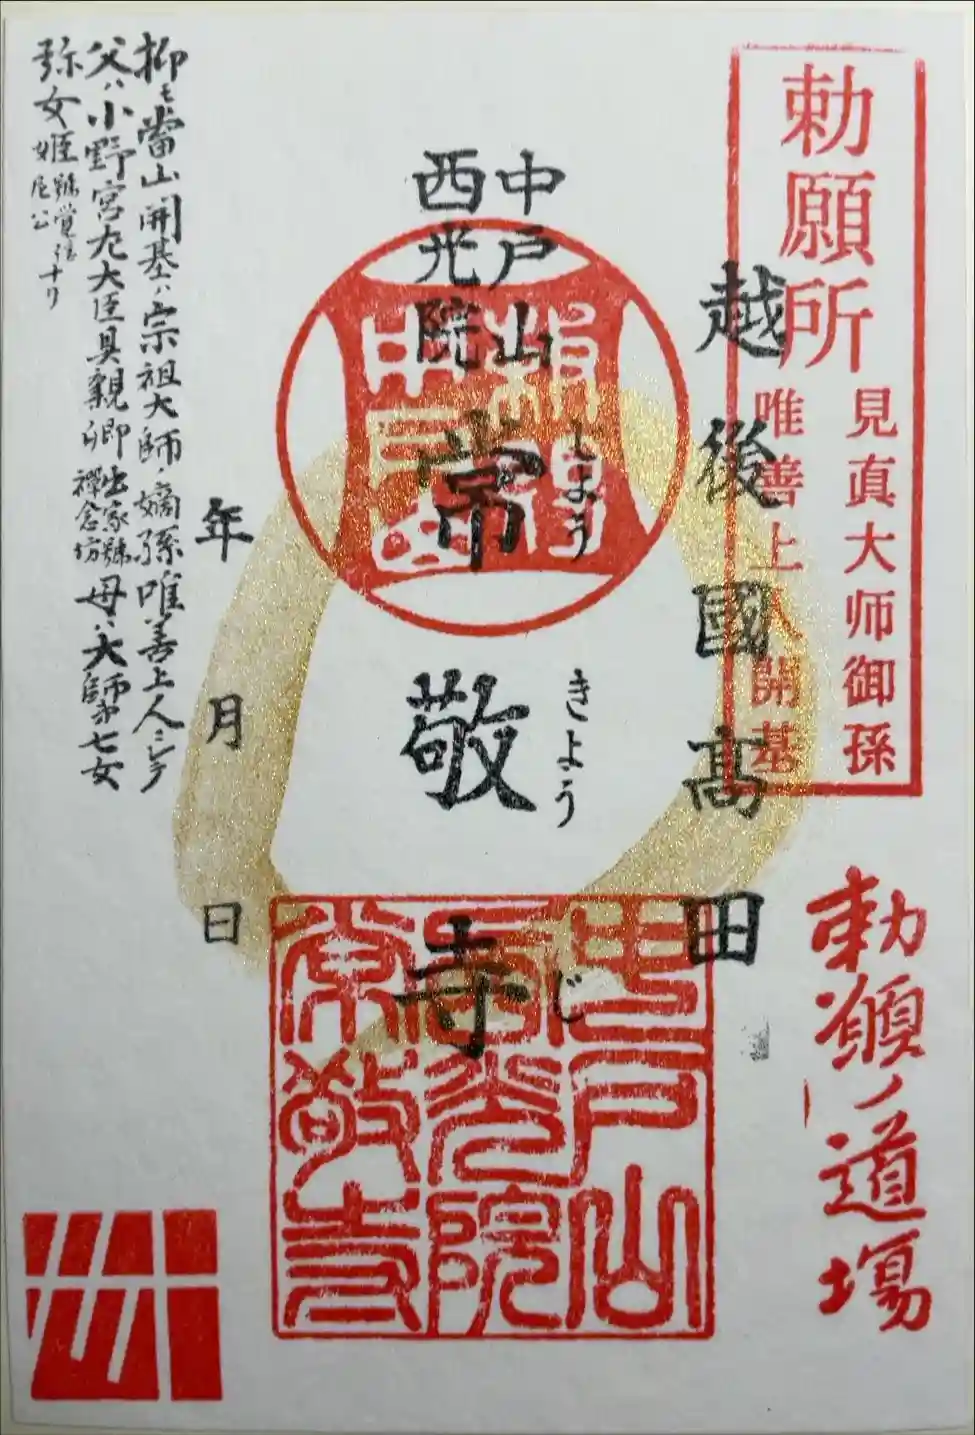 勅願所
見真大师御孫
唯善上人開基
勅願ノ道場
越後國髙田
中戸山
西光院
常敬寺
じょうきょうじ
中戸山
西光院
常敬寺
年月日
抑モ當山開基ハ宗祖大師ノ嫡孫唯善上人ニシテ
父ハ小野宮左大臣具親卿出家號禪念坊母ハ大師第七女
弥女姫